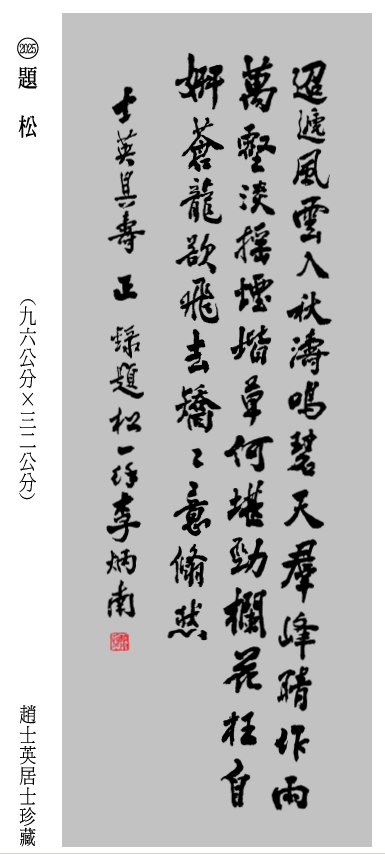 迢遞風雲入秋濤鳴碧天羣峰晴作雨
萬壑淡搖煙堦草何堪勁欄花枉自
妍蒼龍欲飛去矯〻意翛然
士英具壽 正 錄題松一律李炳南
2025 題 松 (九六公分×三二公分) 趙士英居士珍藏